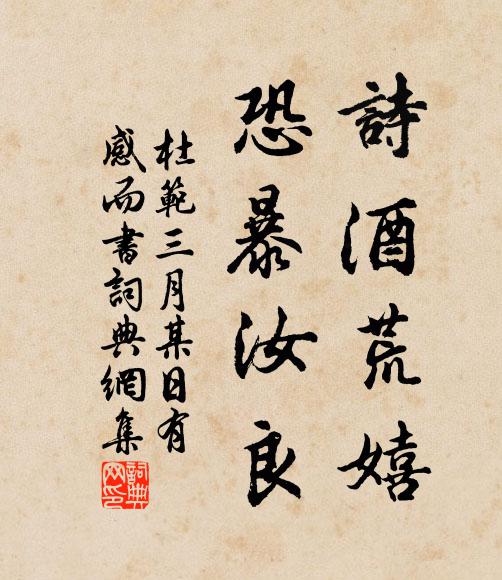 詩酒荒嬉
恐暴汝良
杜範三月某日有
感而書詞典網集
詞典网印